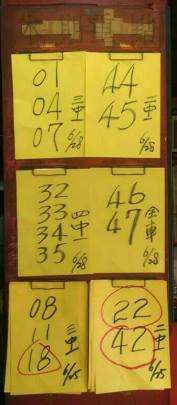 01
04
07
三中一
6/28
44
45
二中一
6/28
32
33
34
35
四中一
6/28
46
47
全車
6/28
08
11
18
三中一
6/25
22
42
二中一
6/25